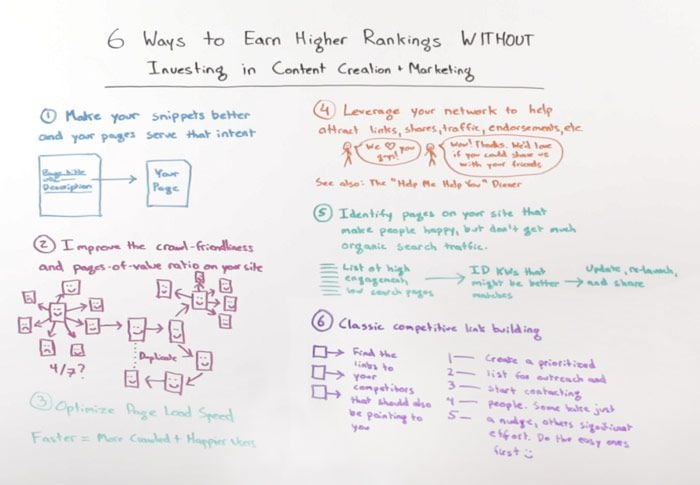 6 Ways to Earn Higher Rankings WITHOUT
Investing in Content Creation + Marketing
1 Make your snippets better
and your pages serve that intent
Page title
Description
Your
Page
2 Improve the crawl-friendliness
and pages-of-value ratio on your site
Duplicate
4/7?
3 Optimize Page Load Speed
Faster = More Crawled + Happier Users
4 Leverage your network to help
attract links, shares, traffic, endorsements, etc.
We ♡ you
Wow! Thanks. We'd love
if you could share us
with your friends
See also: The "Help Me Help You" Dinner
5 Identify pages on your site that
make people happy, but don't get much
organic search traffic.
List of high
engagement,
low search pages
ID KWs that
might be better
matches
Update, re-launch,
and share
6 Classic competitive link building
Find the
links to
your
competitors
that should also
be pointing to
you
1 — Create a prioritized
2 — list for outreach and
3 — start contacting
4 — people. Some take just
5 — a nudge, others significant
effort. Do the easy ones
first